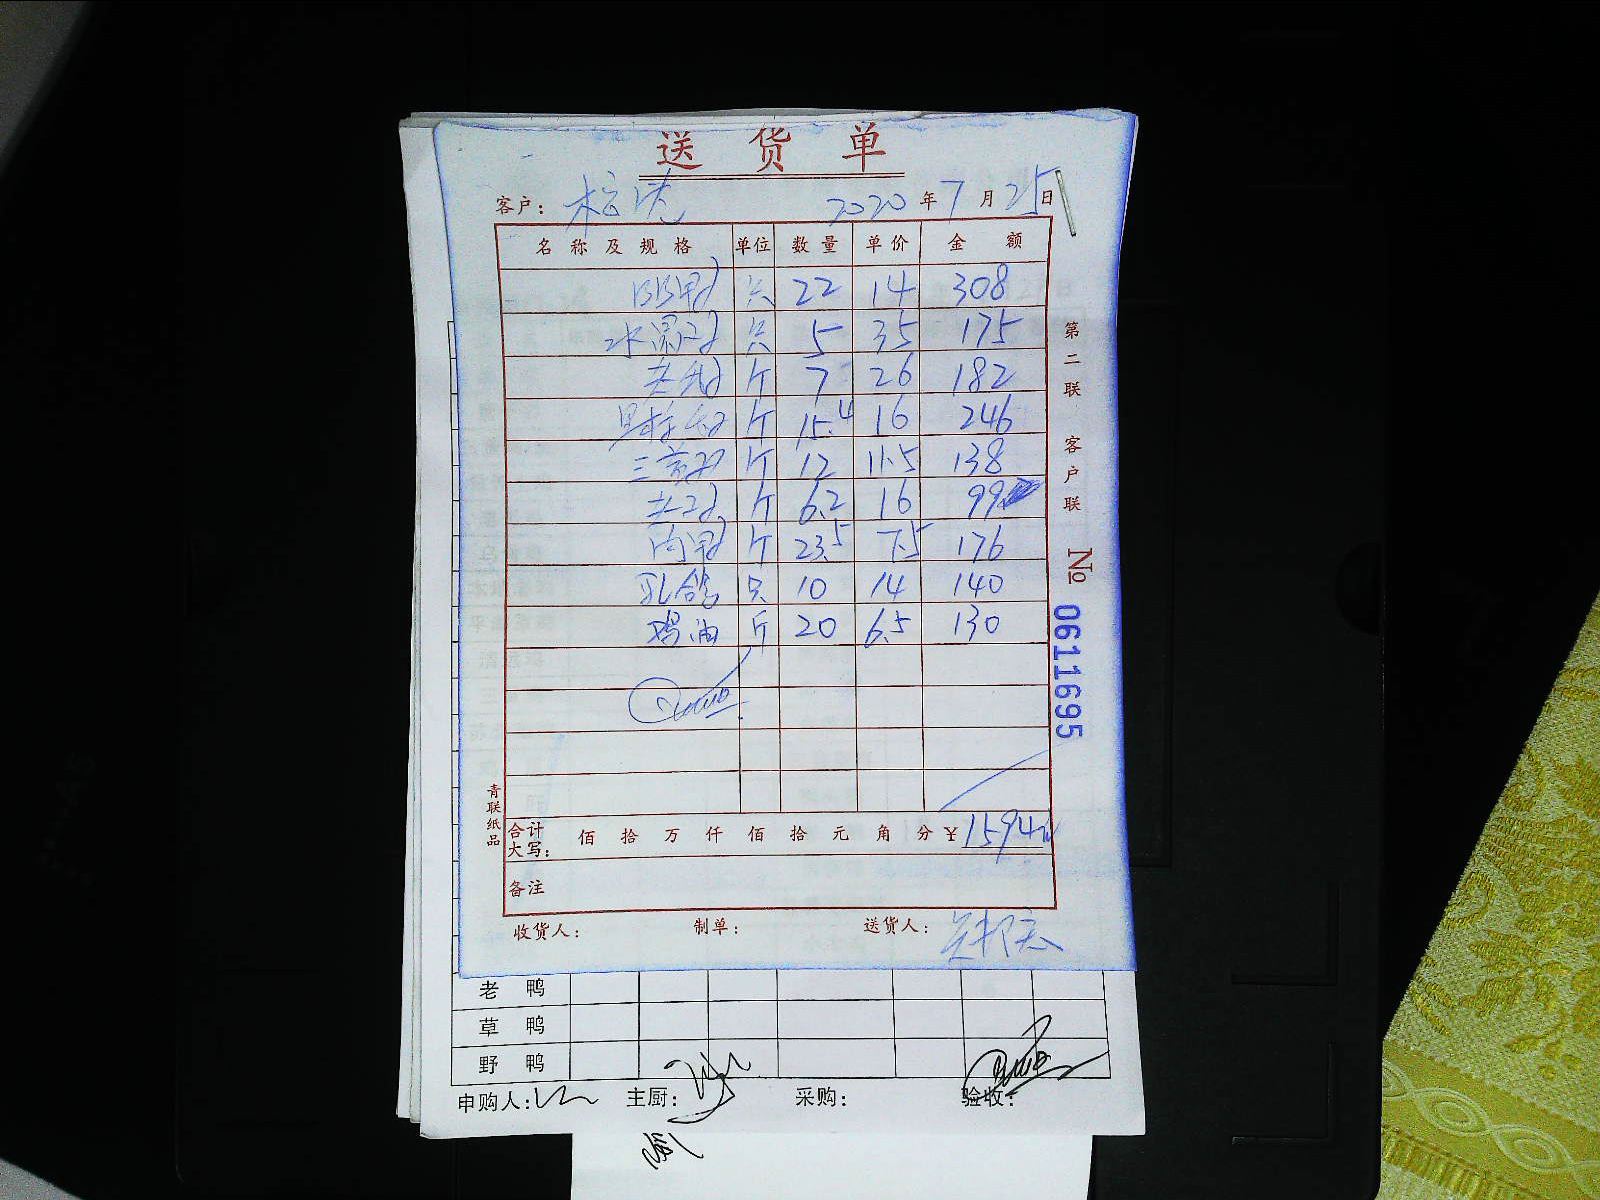 送货单
客户: 2020年7月25日
名称及规格 单位 数量 单价 金额
只 22 14 308
水 只 5 35 175
老 斤 7 26 182
斤 15.4 16 246
三黄 斤 12 11.5 138
老 斤 6.2 16 99
肉 斤 23.5 7.5 176
乳鸽 只 10 14 140
鸡油 斤 20 6.5 130
合计大写: 佰 拾 万 仟 佰 拾 元 角 分 ¥1594
备注
收货人: 制单: 送货人:
第二联 客户联 No 0611695
青联纸品
老鸭
草鸭
野鸭
申购人: 主厨: 采购: 验收: